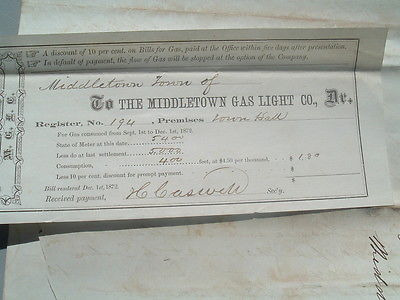 ☞ A discount of 10 per cent. on Bills for Gas, paid at the Office within five days after presentation.
☞ In default of payment, the flow of Gas will be stopped at the option of the Company.
Middletown Town of
To THE MIDDLETOWN GAS LIGHT CO., Dr.
Register, No. 194, Premises Town Hall
For Gas consumed from Sept. 1st to Dec. 1st, 1872.
State of Meter at this date,
Less do at last settlement,
Consumption, 400 feet, at $4.50 per thousand, $ 1.80
Less 10 per cent. discount for prompt payment. $
Bill rendered Dec. 1st, 1872. $
Received payment, H Caswell Sec'y.
M. G. L. C.